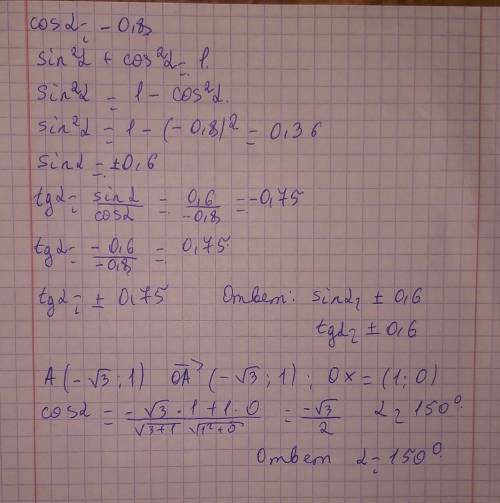 cosα = -0,8
sin²α + cos²α = 1.
sin²α = 1 - cos²α.
sin²α = 1 - (-0,8)² = 0,36
sinα = ±0,6
tgα = sinα/cosα = 0,6/-0,8 = -0,75
tgα = -0,6/-0,8 = 0,75.
tgα = ± 0,75 Ответ: sinα = ± 0,6
tgα = ± 0,6
A (-√3; 1) OA→ (-√3; 1); Ox = (1; 0)
cosα = -√3 · 1 + 1 · 0/√3+1 √1²+0 = -√3/2 α = 150°.
Ответ α = 150°.